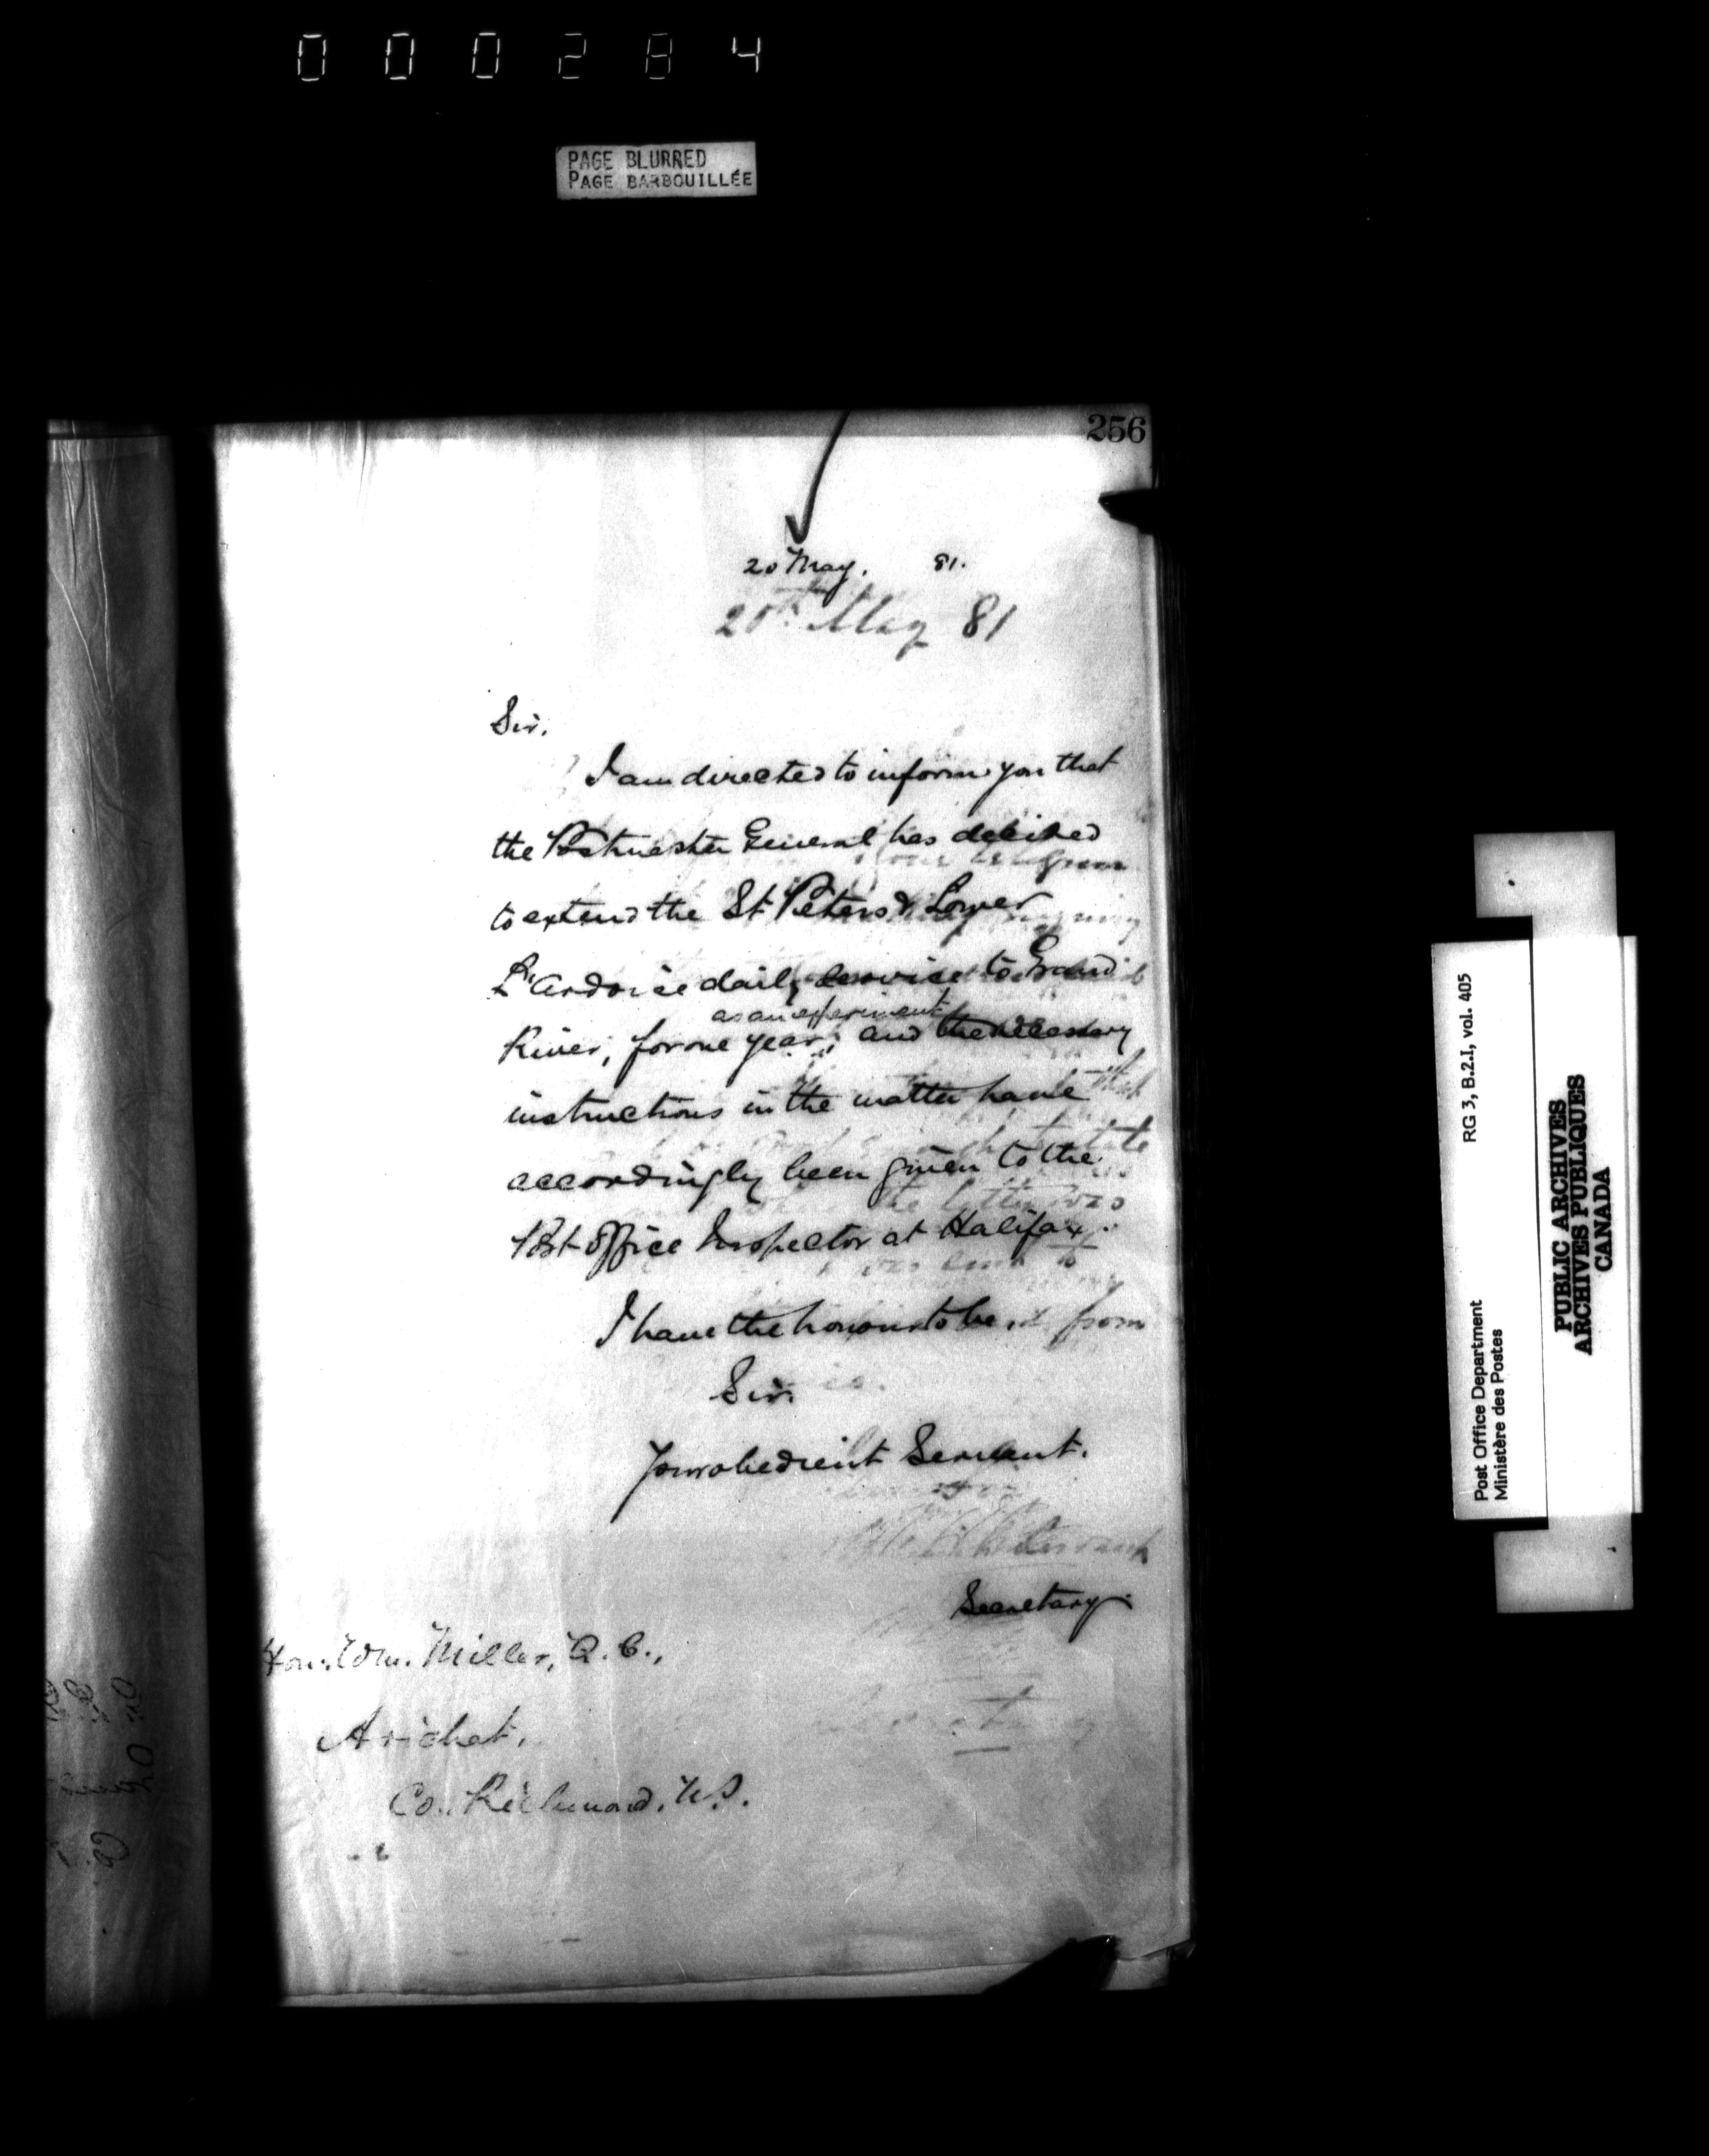 000284
PAGE BLURRED
PAGE BARBOUILLÉE
256
20 May. 81.
20th May 81
Sir.
I am directed to inform you that
the Postmaster General has decided
to extend the St. Peters & Lower
L'Ardoise daily service to Grand
as an experiment
River, for one year, and the necessary
instructions in the matter have
accordingly been given to the
Post Office Inspector at Halifax.
I have the honour to be,
Sir.
Your obedient Servant.
Secretary.
Hon. Wm. Miller, Q.C.,
Arichat,
Co. Richmond. N.S.
Post Office Department
Ministère des Postes
RG 3, B.2.I, vol. 405
PUBLIC ARCHIVES
ARCHIVES PUBLIQUES
CANADA